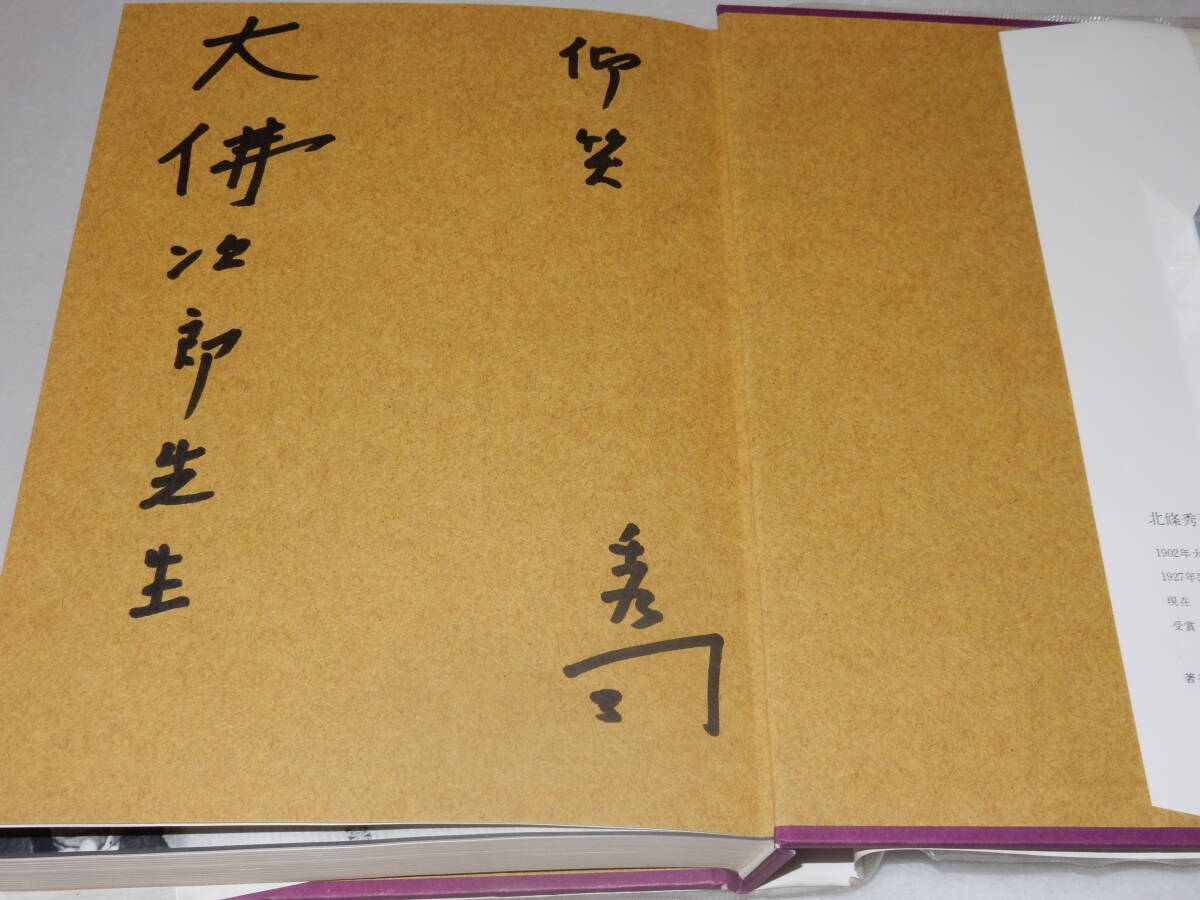 仰笑
秀司
大佛次郎先生
北條秀
1902年
1927年
現在
受賞
著